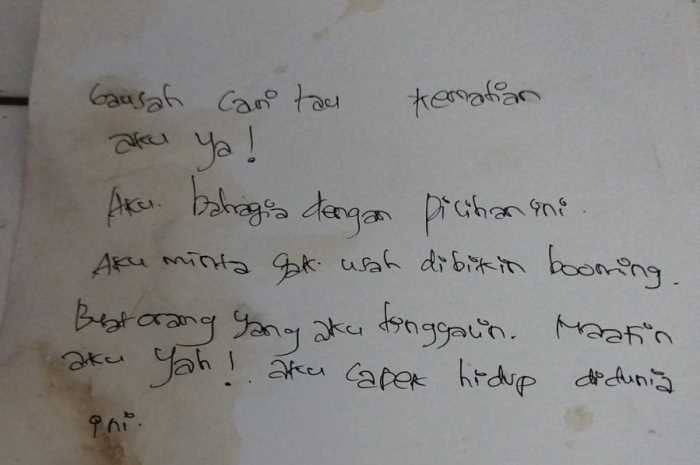 Gausah cari tau kematian
aku ya!
Aku bahagia dengan pilihan ini.
Aku minta gak usah dibikin booming.
Buat orang yang aku tinggalin. Maafin
aku yah! aku capek hidup didunia
ini.